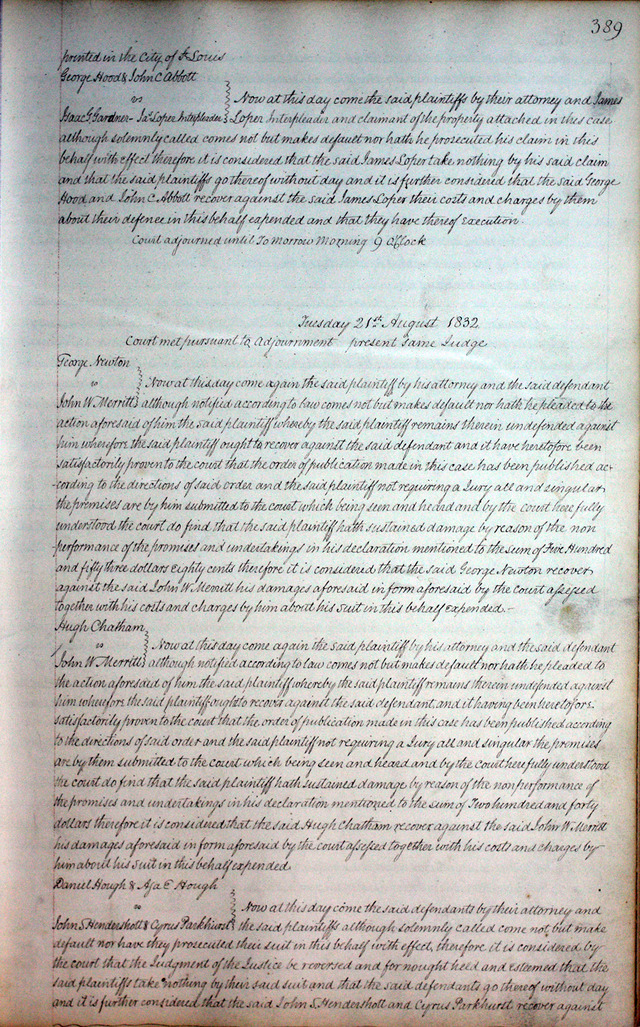 389
printed in the City of St Louis
George Hood & John C Abbott
vs
Now at this day come the said plaintiffs by their attorney and James
Isaac G. Gardner - Jas Loper Interpleader Loper Interpleader and claimant of the property attached in this case
although solemnly called comes not but makes default nor hath he prosecuted his claim in this
behalf with effect therefore it is considered that the said James Loper take nothing by his said claim
and that the said plaintiffs go thereof without day and it is further considered that the said George
Hood and John C. Abbott recover against the said James Loper their costs and charges by them
about their defence in this behalf expended and that they have thereof Execution.
Court adjourned until To Morrow Morning 9 oClock
Tuesday 21st August 1832
Court met pursuant to Adjournment present Same Judge
George Newton
vs
Now at this day come again the said plaintiff by his attorney and the said defendant
John W. Merritt although notified according to law comes not but makes default nor hath he pleaded to the
action aforesaid of him the said plaintiff whereby the said plaintiff remains therein undefended against
him wherefore the said plaintiff ought to recover against the said defendant and it have heretofore been
satisfactorily proven to the court that the order of publication made in this case has been published ac-
-cording to the directions of said order and the said plaintiff not requiring a Jury all and singular
the premises are by him submitted to the court which being seen and heard and by the court here fully
understood the court do find that the said plaintiff hath sustained damage by reason of the non
-performance of the promises and undertakings in his declaration mentioned to the sum of Five Hundred
and fifty three dollars eighty cents therefore it is considered that the said George Newton recover
against the said John W. Merritt his damages aforesaid in form aforesaid by the court assessed
together with his costs and charges by him about his suit in this behalf expended.-
Hugh Chatham
vs
Now at this day come again the said plaintiff by his attorney and the said defendant
John W. Merritt although notified according to law comes not but makes default nor hath he pleaded to
the action aforesaid of him the said plaintiff whereby the said plaintiff remains therein undefended against
him wherefore the said plaintiff ought to recover against the said defendant and it having been heretofore
satisfactorily proven to the court that the order of publication made in this case has been published according
to the directions of said order and the said plaintiff not requiring a Jury all and singular the premises
are by them submitted to the court which being seen and heard and by the court here fully understood
the court do find that the said plaintiff hath sustained damage by reason of the nonperformance of
the promises and undertakings in his declaration mentioned to the sum of Two hundred and forty
dollars therefore it is considered that the said Hugh Chatham recover against the said John W. Merritt
his damages aforesaid in form aforesaid by the court assessed together with his costs and charges by
him about his suit in this behalf expended
Daniel Hough & Asa E Hough
vs
Now at this day come the said defendants by their attorney and
John S. Hendershott & Cyrus Parkhurst the said plaintiffs although solemnly called come not, but make
default nor have they prosecuted their suit in this behalf with effect, therefore it is considered by
the court that the Judgment of the Justice be reversed and for nought held and esteemed that the
said plaintiffs take nothing by their said suit and that the said defendants go thereof without day
and it is further considered that the said John S. Hendershott and Cyrus Parkhurst recover against